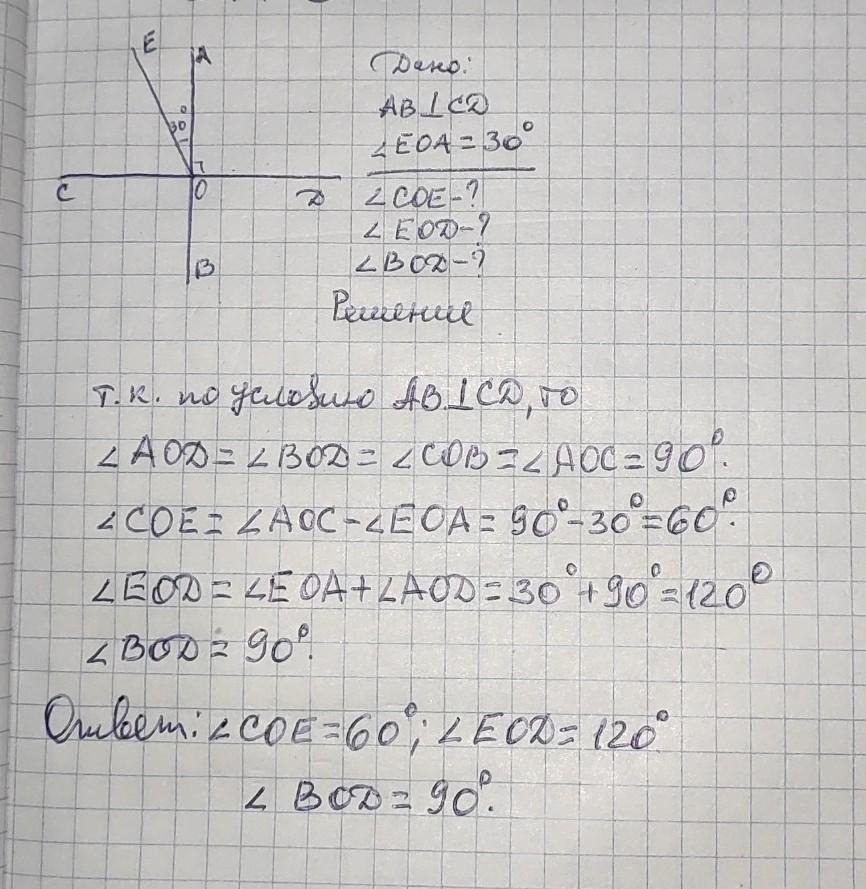 E
A
30°
C
O
D
B
Дано:
AB⊥CD
∠EOA=30°
∠COE-?
∠EOD-?
∠BOD-?
Решение
т.к. по условию AB⊥CD, то
∠AOD=∠BOD=∠COB=∠AOC=90°.
∠COE=∠AOC-∠EOA=90°-30°=60°.
∠EOD=∠EOA+∠AOD=30°+90°=120°
∠BOD=90°.
Ответ: ∠COE=60°; ∠EOD=120°
∠BOD=90°.